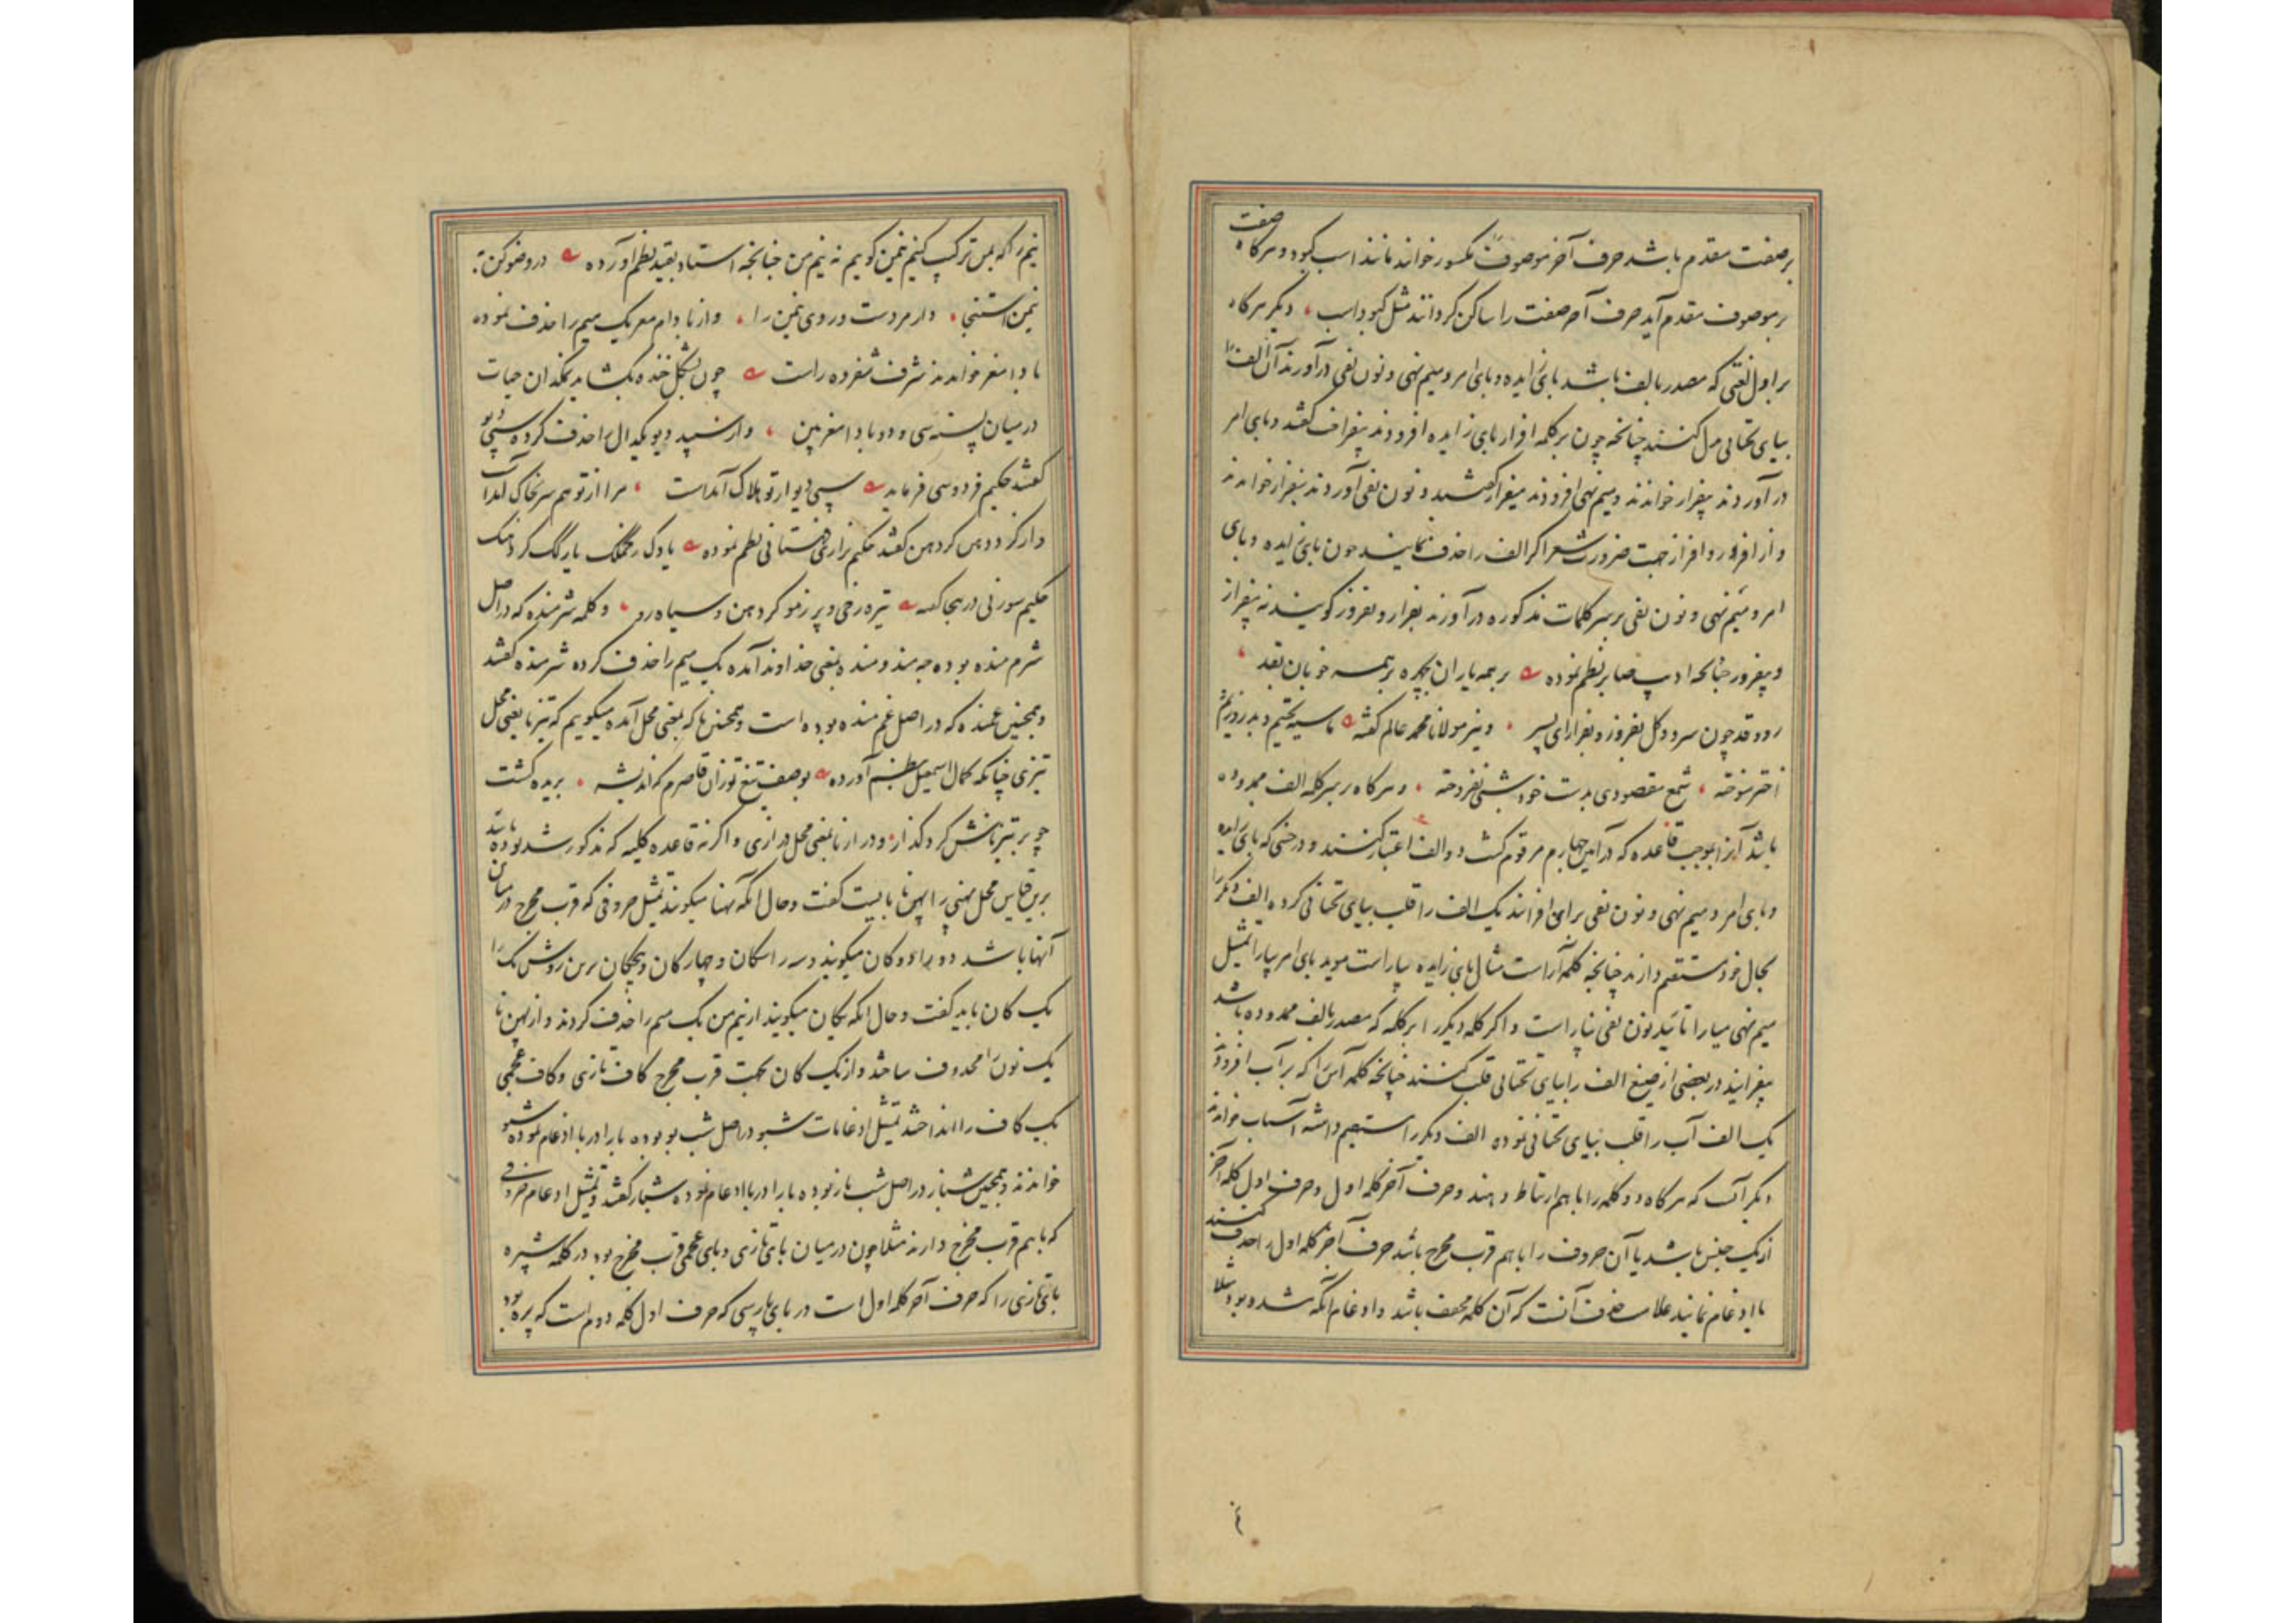 بر صفت مقدم باشد حرف آخر موصوف مکسور خوانند مانند اسب کبود و هرگاه صفت
بر موصوف مقدم آید حرف آخر صفت را ساکن گردانند مثل کبود اسب دیگر هرگاه
بر اول لغتی که مصدر بالف باشد بای زایده و بای امر و میم نهی و نون نفی درآورند آن الف را
بیای تحتانی بدل کنند چنانچه چون بر کلمه افراز بای زایده افزودند بیفراز گفتند و بای امر
درآوردند بیفراز خواندند و میم نهی افزودند میفراز گفتند و نون نفی آوردند نیفراز خواندند
و از افروز و افراز جهت ضرورت شعر اگر الف را حذف نمایند چون بای زایده و بای
امر و میم نهی و نون نفی بر سر کلمات مذکوره درآورند بفراز و بفروز گویند نه بیفراز
و بیفروز چنانچه ادیب صابر نظم نموده بر همه یاران بچهره بر همه خوبان بقد
رو و قد چون سرو و گل بفروز و بفراز ای پسر و نیز مولانا محمد عالم گفته ما سیه بختیم و بد روزیم
اختر سوخته شمع مقصودی بدست خود شبی نفروخته و هرگاه بر سر کلمه الف ممدوده
باشد آنرا بموجب قاعده که در آیین چهارم مرقوم گشت دو الف اعتبار کنند و در حینی که بای زایده
و بای امر و میم نهی و نون نفی بر آن افزایند یک الف را قلب بیای تحتانی کرده الف دیگر را
بحال خود مستقیم دارند چنانچه کلمه آراست مثال بای زایده بیاراست موید بای امر بیارا تمثیل
میم نهی میارا تائید نون نفی نیاراست و اگر کلمه دیگر را بر کلمه که مصدر بالف ممدوده باشد
بیفزایند در بعضی از صیغ الف را بیای تحتانی قلب کنند چنانچه کلمه آس را که بر آب افزودند
یک الف آب را قلب بیای تحتانی نموده الف دیگر را مستقیم داشته آسیاب خواندند
دیگر آنست که هرگاه دو کلمه را با هم ارتباط دهند و حرف آخر کلمه اول و حرف اول کلمه آخر
از یک جنس باشد یا آن حروف را با هم قرب مخرج باشد حرف آخر کلمه اول را حذف کنند
یا ادغام نمایند علامت حذف آنست که آن کلمه مخفف باشد و ادغام آنکه مشدد بود مثلا
نیم را که بمن ترکیب کنیم نیمن گوییم نه نیم من چنانچه استاد بقید نظم آورده در وضو کن
نیمن استنجا دار مردست و روی نیمن را و از بادام مغز یک میم را حذف نموده
بادامغز خواندند شرف شفروه راست چون بشکل خنده بگشاید نمکدان حیات
در میان پسته سی و دو بادامغز بین و از سپید دیو یکدال را حذف کرده سپیدیو
گفتند حکیم فردوسی فرماید سپیدیو از تو هلاک آمدست مرا از تو هم سر بخاک آمدست
حکیم سوزنی در هجا گفته تیره رخی و پر زمو گردهن و سیاه رو و کلمه شرمنده که در اصل
شرم منده بوده چه مند و منده بمعنی خداوند آمده یک میم را حذف کرده شرمنده گفتند
و همچنین غمنده که در اصل غم منده بوده است و همچنین نا که بمعنی محل آمده میگوییم که تیزنا یعنی محل
تیزی چنانکه کمال اسمعیل بنظم آورده بوصف تیغ تو زان قاصرم که اندیشه بریده گشت
چو بر تیزناش کرد گذار و درازنا بمعنی محل درازی و اگر نه قاعده کلیه که مذکور شد بوده باشد
برین قیاس محل پهنی را پهن نا بایست گفت و حال آنکه پهنا میگویند تمثیل حروفی که قرب مخرج در میان
آنها باشد دو را دوکان میگویند و سه را سکان و چهارکان و پنجکان برین روش یک را
یک کان باید گفت و حال آنکه یکان میگویند از نیم من یک میم را حذف کردند و از پهن نا
یک نون را محذوف ساختند و از یک کان بجهت قرب مخرج کاف تازی و کاف عجمی
یک کاف را انداختند تمثیل ادغامات شبو در اصل شب بو بوده با را در با ادغام نموده شبو
خواندند و همچنین شباز در اصل شب باز بوده با را در با ادغام نموده شباز گفتند و تمثیل ادغام حروفی
که با هم قرب مخرج دارند مثلا چون در میان بای تازی و بای عجمی قرب مخرج بود در کلمه شپره
بای تازی را که حرف آخر کلمه اول است در بای پارسی که حرف اول کلمه دوم است که پره بود